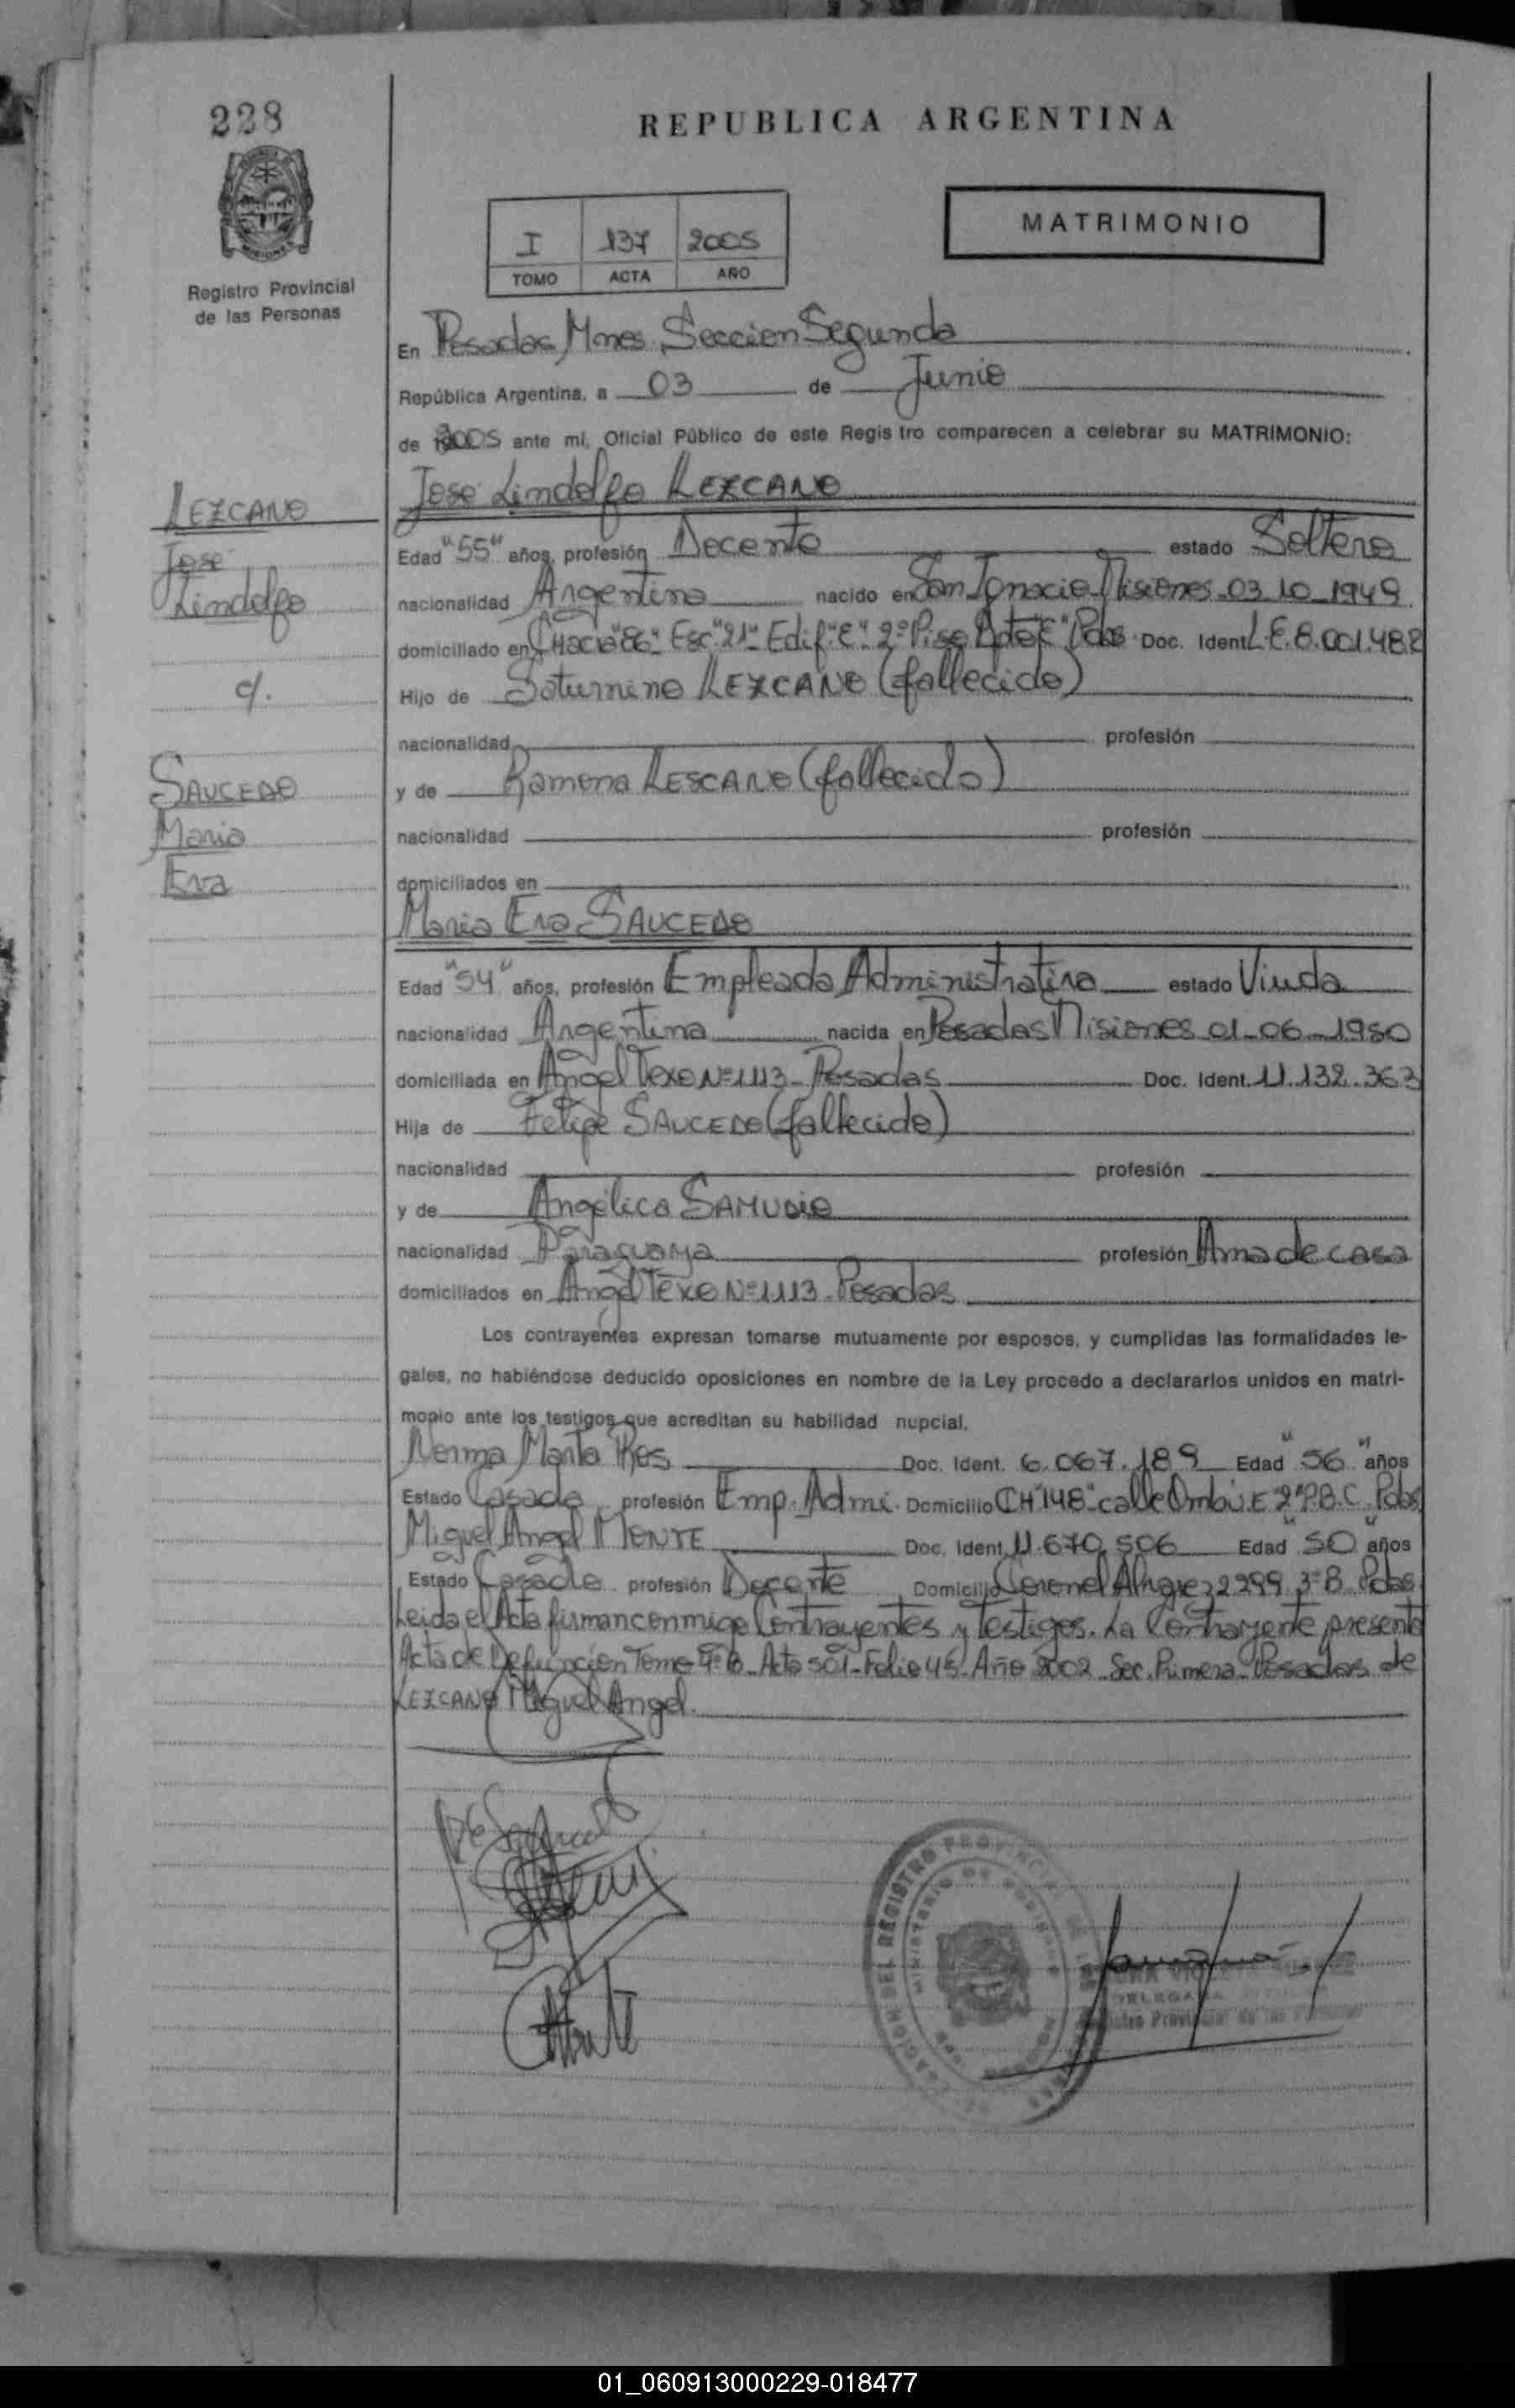 228
REPUBLICA ARGENTINA
Registro Provincial
de las Personas
I 137 2005
TOMO ACTA AÑO
MATRIMONIO
En Posadas, Mnes. Seccion Segunda
República Argentina, a 03 de Junio
de 2005 ante mí, Oficial Público de este Regis tro comparecen a celebrar su MATRIMONIO:
LEZCANO
José
Lindolfo
c/.
SAUCEDO
Maria
Eva
José Lindolfo LEZCANO
Edad "55" años, profesión Docente estado Soltero
nacionalidad Argentina nacido en San Ignacio Misiones 03 10 1949
domiciliado en Chacra "86" Esc "21" Edif "E" 2º Piso Dpto "E" Pdas Doc. Ident. L.E. 8.001.482
Hijo de Saturnino LEZCANO (fallecido)
nacionalidad profesión
y de Ramona LESCANO (fallecido)
nacionalidad profesión
domiciliados en
Maria Eva SAUCEDO
Edad "54" años, profesión Empleada Administrativa estado Viuda
nacionalidad Argentina nacida en Posadas Misiones 01-06-1950
domiciliada en Angel Texo Nº 1113 - Posadas Doc. Ident. 11.132.363
Hija de Felipe SAUCEDO (fallecido)
nacionalidad profesión
y de Angélica SAMUDIO
nacionalidad Paraguaya profesión Ama de casa
domiciliados en Angel Texo Nº 1113 - Posadas
Los contrayentes expresan tomarse mutuamente por esposos, y cumplidas las formalidades le-
gales, no habiéndose deducido oposiciones en nombre de la Ley procedo a declararlos unidos en matri-
monio ante los testigos que acreditan su habilidad nupcial.
Norma Marta Ros Doc. Ident. 6.067.189 Edad "56" años
Estado Casada profesión Emp. Admi. Domicilio CH "148" calle Ombú. E 2º P.B.C. Pdas
Miguel Angel MONTE Doc. Ident. 11.670.506 Edad "50" años
Estado Casado profesión Docente Domicilio Coronel Alvarez 2299 3º B. Pdas
Leida el Acta firman conmigo Contrayentes y Testigos. La Contrayente presenta
Acta de Defunción Tomo 4º B - Acta 501 - Folio 45 - Año 2002 Sec. Primera - Posadas de
LEZCANO Miguel Angel.
DELEGADA
Registro Provincial de las Personas
01_060913000229-018477